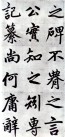 之碑不朞之言
公實知之烱專
記纂尚何庸辭